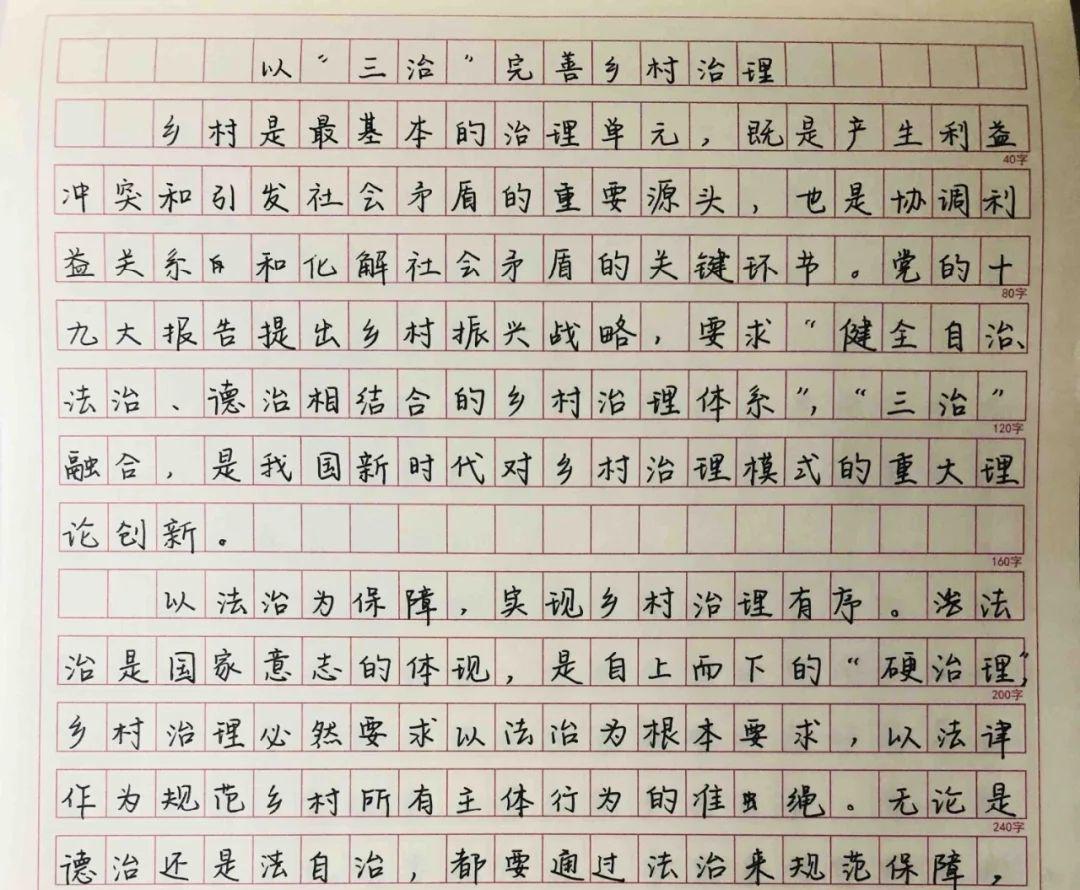 以“三治”完善乡村治理
乡村是最基本的治理单元，既是产生利益
40字
冲突和引发社会矛盾的重要源头，也是协调利
益关系和化解社会矛盾的关键环节。党的十
80字
九大报告提出乡村振兴战略，要求“健全自治、
法治、德治相结合的乡村治理体系”，“三治”
120字
融合，是我国新时代对乡村治理模式的重大理
论创新。
160字
以法治为保障，实现乡村治理有序。法
治是国家意志的体现，是自上而下的“硬治理”，
200字
乡村治理必然要求以法治为根本要求，以法律
作为规范乡村所有主体行为的准绳。无论是
240字
德治还是法自治，都要通过法治来规范保障，